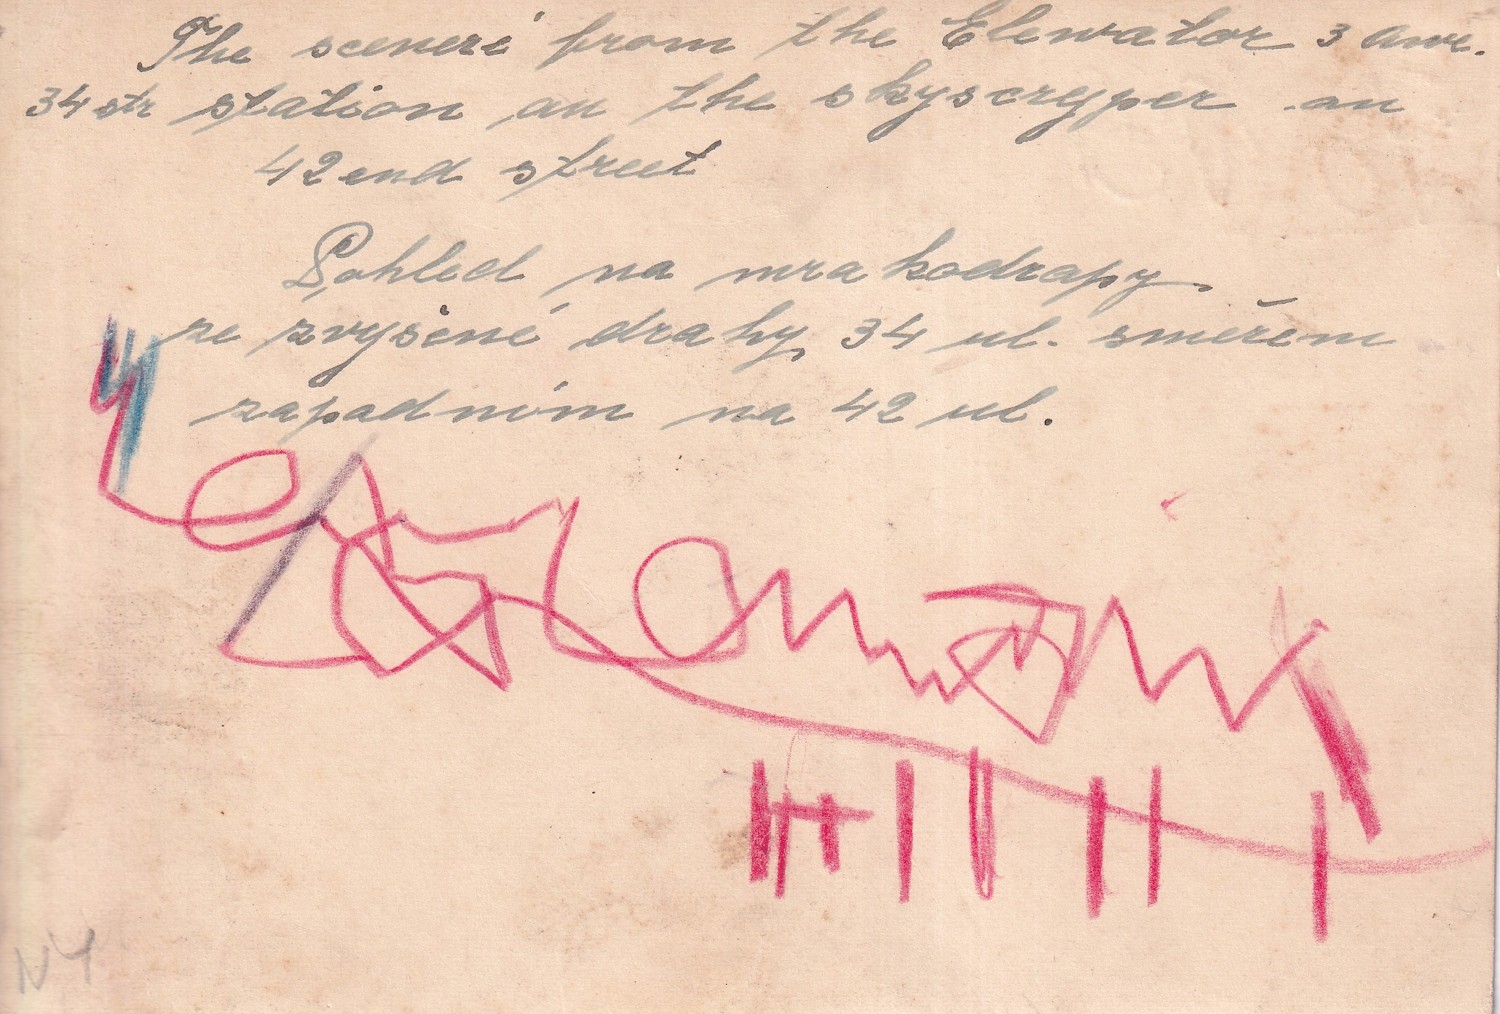 The sceneri from the Elewator 3 Awe.
34 str station an the skyscryper an
42 end street
Pohled na mrakodrapy
ze zvyšené drahy, 34 ul. směrem
zapadním na 42 ul.
NY